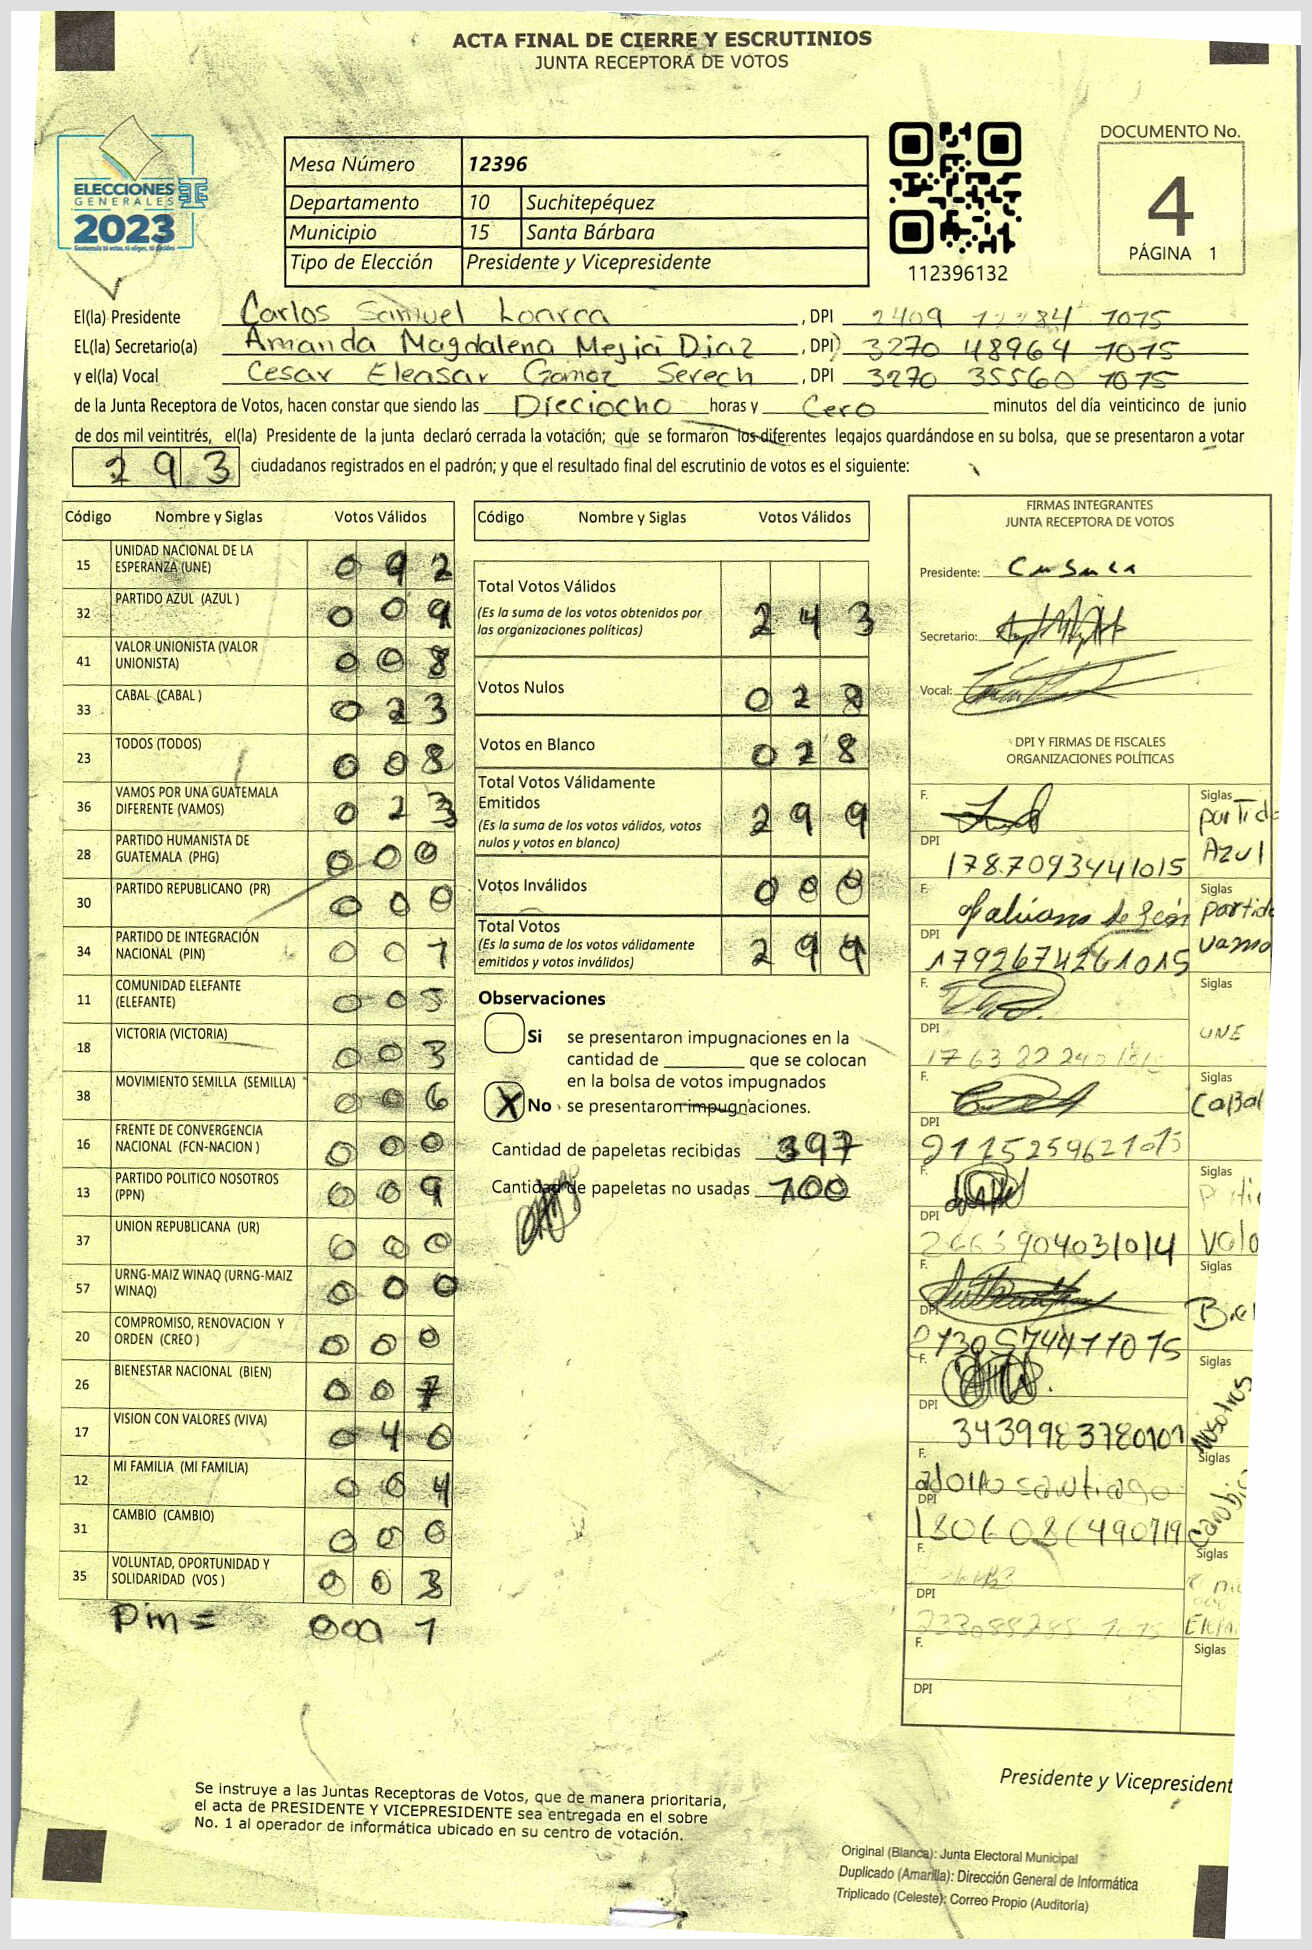 ACTA FINAL DE CIERRE Y ESCRUTINIOS
JUNTA RECEPTORA DE VOTOS
ELECCIONES
GENERALES
2023
Mesa Número 12396
Departamento 10 Suchitepéquez
Municipio 15 Santa Bárbara
Tipo de Elección Presidente y Vicepresidente
112396132
DOCUMENTO No.
4
PÁGINA 1
El(la) Presidente Carlos Samuel Loarca , DPI 2409 1084 1015
EL(la) Secretario(a) Amanda Magdalena Mejia Diaz , DPI 3270 48964 1015
y el(la) Vocal Cesar Eleasar Gomez Serech , DPI 3270 35560 1015
de la Junta Receptora de Votos, hacen constar que siendo las Dieciocho horas y Cero minutos del día veinticinco de junio
de dos mil veintitrés, el(la) Presidente de la junta declaró cerrada la votación; que se formaron los diferentes legajos guardándose en su bolsa, que se presentaron a votar
293 ciudadanos registrados en el padrón; y que el resultado final del escrutinio de votos es el siguiente:
Código Nombre y Siglas Votos Válidos
15 UNIDAD NACIONAL DE LA ESPERANZA (UNE) 092
32 PARTIDO AZUL (AZUL ) 009
41 VALOR UNIONISTA (VALOR UNIONISTA) 008
33 CABAL (CABAL ) 023
23 TODOS (TODOS) 008
36 VAMOS POR UNA GUATEMALA DIFERENTE (VAMOS) 023
28 PARTIDO HUMANISTA DE GUATEMALA (PHG) 000
30 PARTIDO REPUBLICANO (PR) 000
34 PARTIDO DE INTEGRACIÓN NACIONAL (PIN) 001
11 COMUNIDAD ELEFANTE (ELEFANTE) 005
18 VICTORIA (VICTORIA) 003
38 MOVIMIENTO SEMILLA (SEMILLA) 006
16 FRENTE DE CONVERGENCIA NACIONAL (FCN-NACION ) 000
13 PARTIDO POLITICO NOSOTROS (PPN) 009
37 UNION REPUBLICANA (UR) 000
57 URNG-MAIZ WINAQ (URNG-MAIZ WINAQ) 000
20 COMPROMISO, RENOVACION Y ORDEN (CREO ) 000
26 BIENESTAR NACIONAL (BIEN) 007
17 VISION CON VALORES (VIVA) 040
12 MI FAMILIA (MI FAMILIA) 004
31 CAMBIO (CAMBIO) 000
35 VOLUNTAD, OPORTUNIDAD Y SOLIDARIDAD (VOS ) 003
Pin = 000 1
Código Nombre y Siglas Votos Válidos
Total Votos Válidos
(Es la suma de los votos obtenidos por las organizaciones políticas) 243
Votos Nulos 028
Votos en Blanco 028
Total Votos Válidamente Emitidos
(Es la suma de los votos válidos, votos nulos y votos en blanco) 299
Votos Inválidos 000
Total Votos
(Es la suma de los votos válidamente emitidos y votos inválidos) 299
Observaciones
Si se presentaron impugnaciones en la
cantidad de ________ que se colocan
en la bolsa de votos impugnados
X No se presentaron impugnaciones.
Cantidad de papeletas recibidas 397
Cantidad de papeletas no usadas 100
FIRMAS INTEGRANTES
JUNTA RECEPTORA DE VOTOS
Presidente:
Secretario:
Vocal:
DPI Y FIRMAS DE FISCALES
ORGANIZACIONES POLÍTICAS
F. Siglas partido Azul
DPI 1787093441015
F. Siglas partido vamo
DPI 1792674261015
F. Siglas UNE
DPI
F. Siglas CaBal
DPI
F. Siglas Valo
DPI
F.
Siglas
DPI
F. Siglas Nosotros
DPI 3439983780101
F. adolfo santiago Siglas Cambio
DPI
F. Siglas
DPI
F. Siglas
DPI
Presidente y Vicepresident
Se instruye a las Juntas Receptoras de Votos, que de manera prioritaria,
el acta de PRESIDENTE Y VICEPRESIDENTE sea entregada en el sobre
No. 1 al operador de informática ubicado en su centro de votación.
Original (Blanca): Junta Electoral Municipal
Duplicado (Amarilla): Dirección General de Informática
Triplicado (Celeste): Correo Propio (Auditoría)